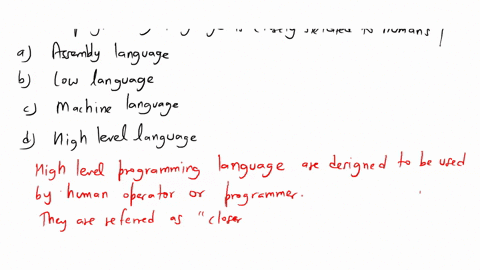 is closely related to humans
a) Assembly language
b) Low language
c) Machine language
d) High level language
High level programming language are designed to be used
by human operator or programmer.
They are referred as "closer